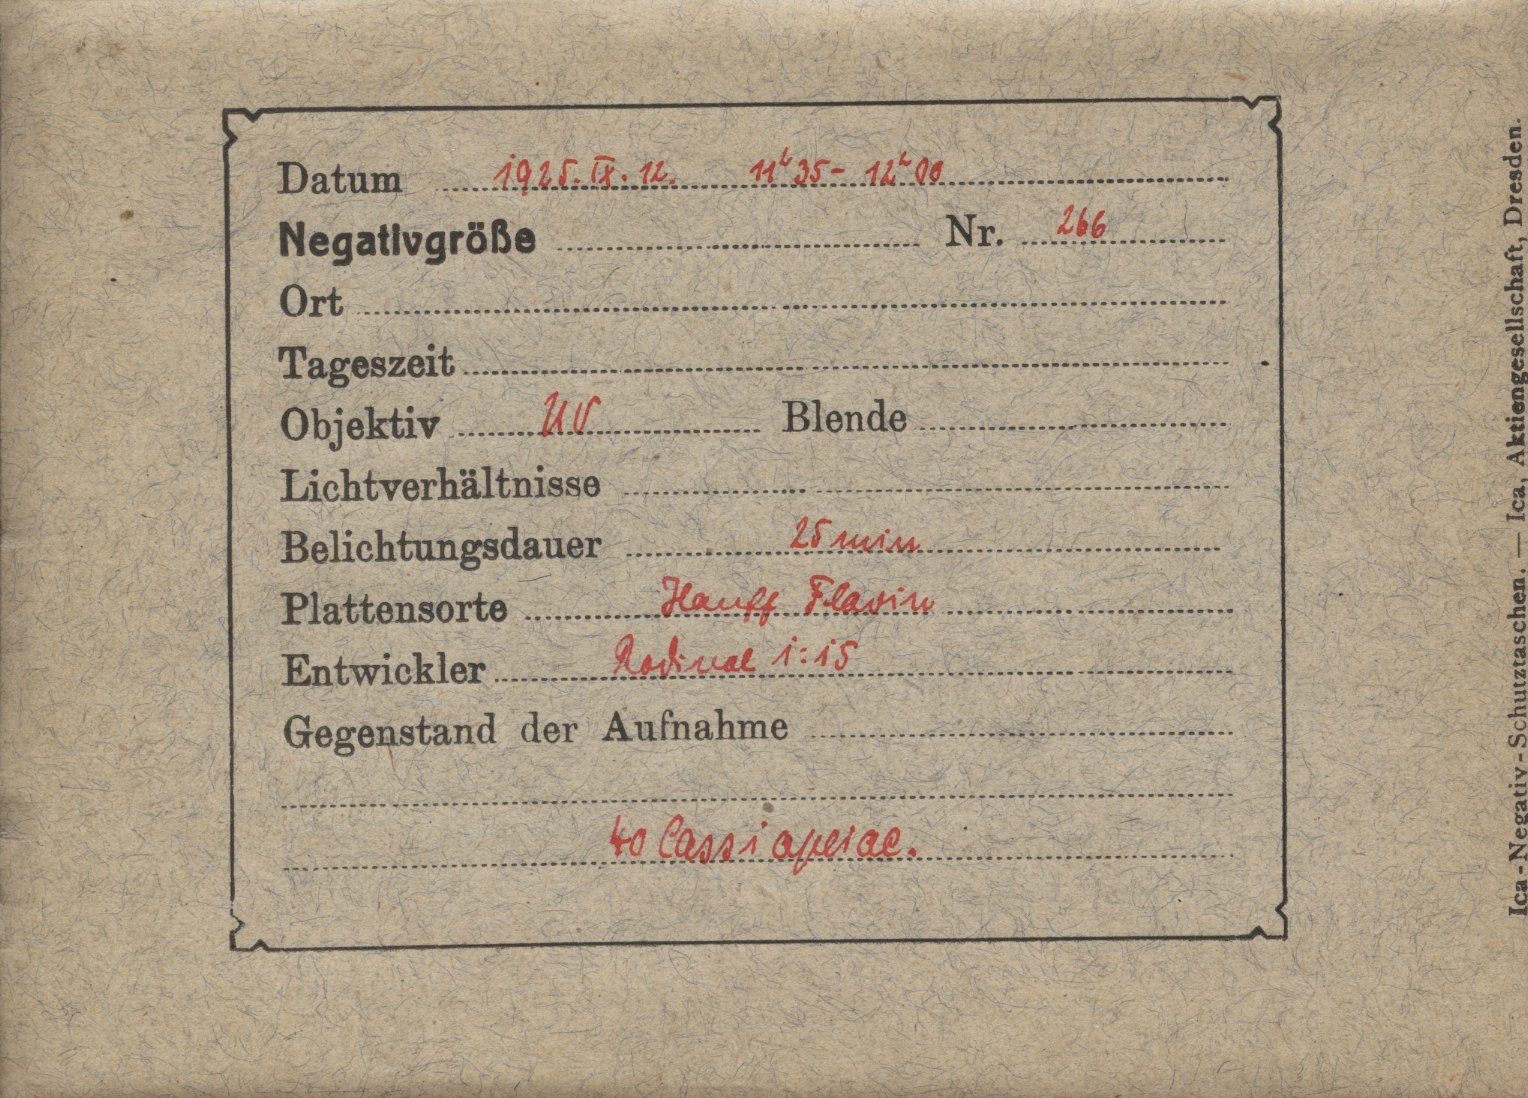 Datum 1925. IX. 12. 11ʰ35 - 12ʰ00
Negativgröße Nr. 266
Ort
Tageszeit
Objektiv UV Blende
Lichtverhältnisse
Belichtungsdauer 25 min
Plattensorte Hauff Flavin
Entwickler Rodinal 1:15
Gegenstand der Aufnahme
40 Cassiopeiae.
Ica-Negativ-Schutztaschen. — Ica, Aktiengesellschaft, Dresden.